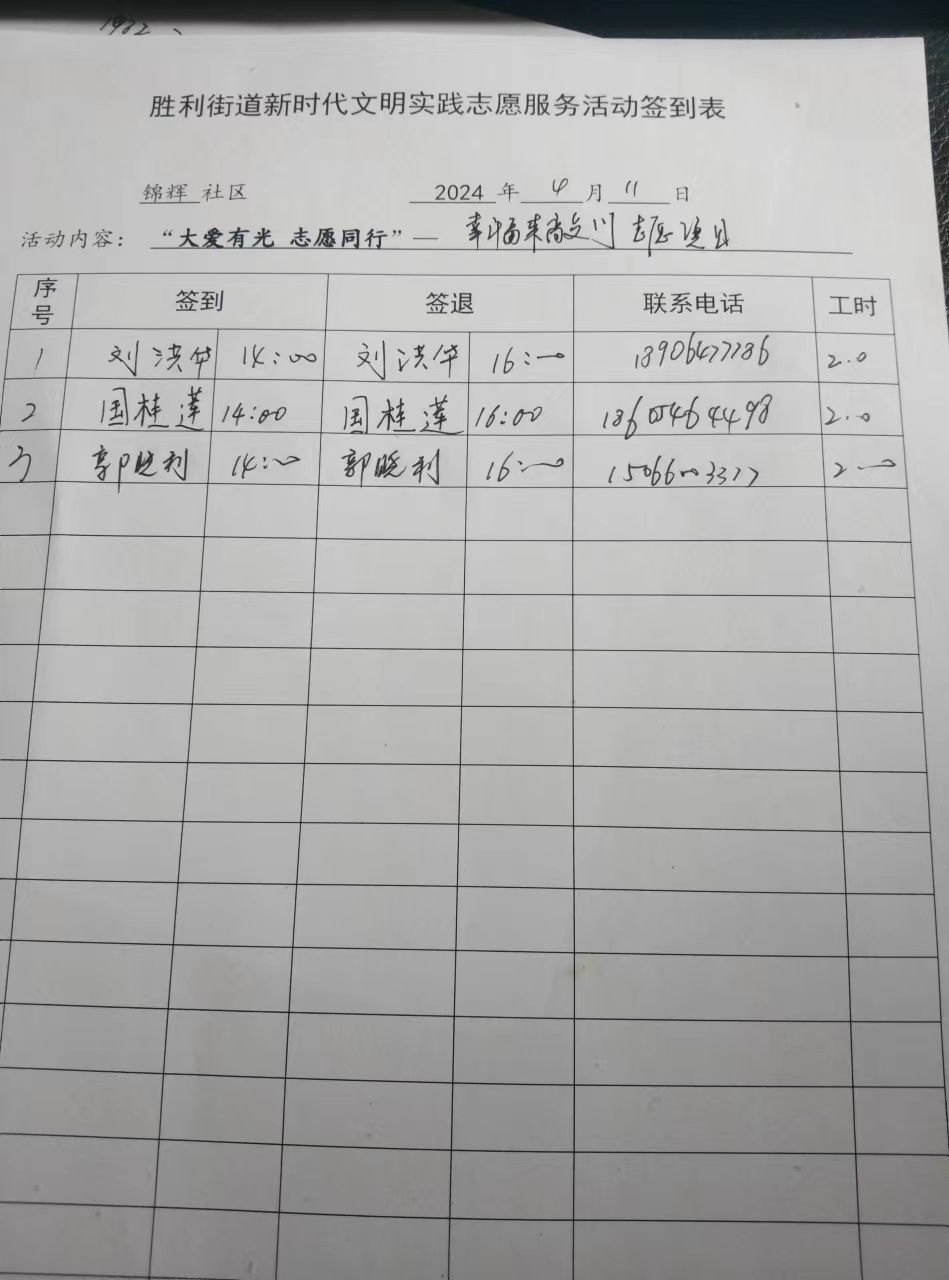 1932、
胜利街道新时代文明实践志愿服务活动签到表
锦辉 社区 2024 年 4 月 11 日
活动内容：“大爱有光 志愿同行”— 幸福来 志愿项目
序号 签到 签退 联系电话 工时
1 刘洪华 14:00 刘洪华 16:00 2.0
2 国桂莲 14:00 国桂莲 16:00 2.0
3 郭晓利 14:00 郭晓利 16:00 2.0